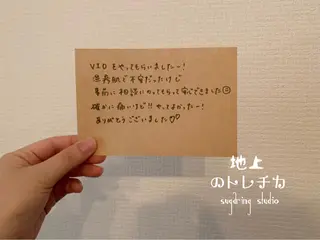 VIOをやってもらいましたー!
湿疹肌で不安だったけど
事前に相談にのってもらって安心できました☺
確かに痛いけど!! やってよかったー!
ありがとうございました♡♡
地上
のトレチカ
sugaring studio